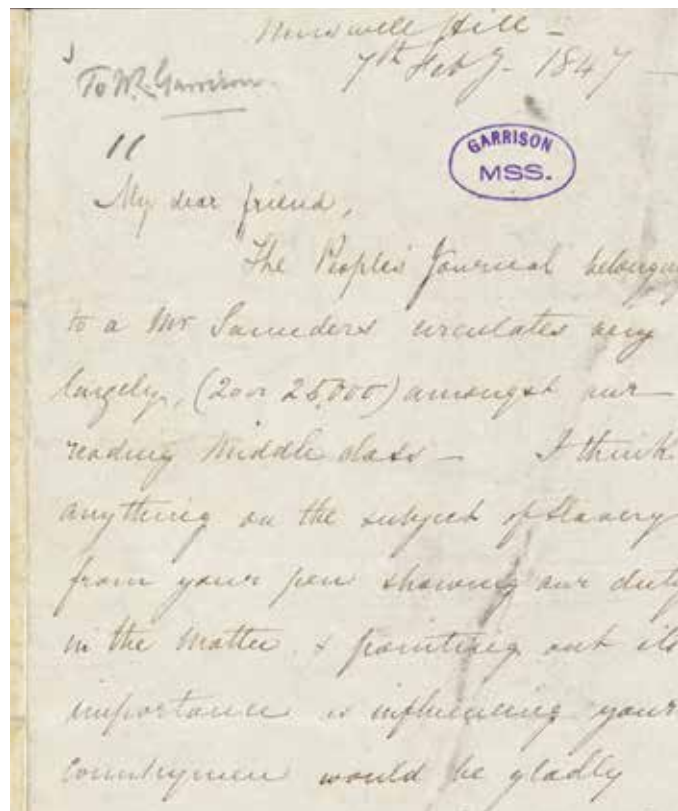 Muswell Hill -
7th Feby - 1847 -
To W.L. Garrison.
11
GARRISON
MSS.
My dear friend,
The Peoples Journal belonging
to a Mr Saunders circulates very
largely, (20 or 25,000) amongst our
reading Middle class - I think
anything on the subject of Slavery
from your pen showing our duty
in the matter & pointing out its
importance in influencing your
Countrymen would be gladly